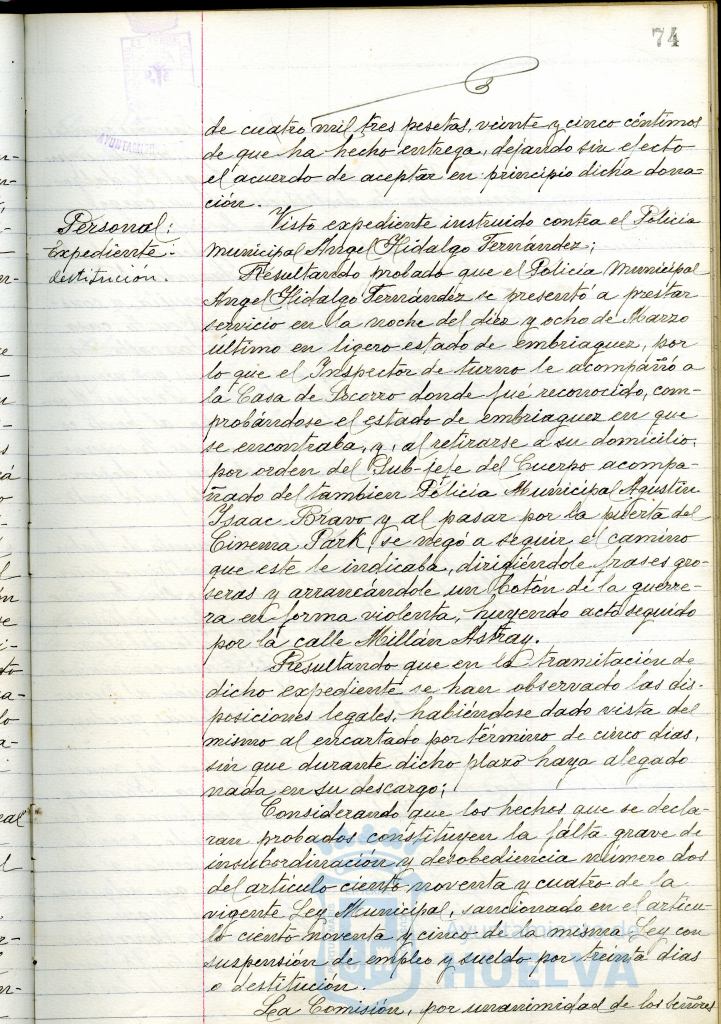 74
de cuatro mil tres pesetas, veinte y cinco céntimos
de que ha hecho entrega, dejando sin efecto
el acuerdo de aceptar en principio dicha dona-
ción.
Personal:
Expediente-
destitución.
Visto expediente instruido contra el Policia
Municipal Angel Hidalgo Fernández;
Resultando probado que el Policia Municipal
Angel Hidalgo Fernández se presentó a prestar
servicio en la noche del diez y ocho de Marzo
último en ligero estado de embriaguez, por
lo que el Inspector de turno le acompañó a
la Casa de Socorro donde fué reconocido, com-
probándose el estado de embriaguez en que
se encontraba, y, al retirarse a su domicilio,
por orden del Sub-jefe del Cuerpo acompa-
ñado del tambien Policia Municipal Agustin
Isaac Bravo y al pasar por la puerta del
Cinema Park, se negó a seguir el camino
que este le indicaba, dirigiéndole frases gro-
seras y arrancándole un botón de la guerre-
ra en forma violenta, huyendo acto seguido
por la calle Millán Astray.
Resultando que en la tramitación de
dicho expediente se han observado las dis-
posiciones legales, habiéndose dado vista del
mismo al encartado por término de cinco dias,
sin que durante dicho plazo haya alegado
nada en su descargo;
Considerando que los hechos que se decla-
ran probados constituyen la falta grave de
insubordinación y desobediencia número dos
del articulo ciento noventa y cuatro de la
vigente Ley Municipal, sancionado en el articu-
lo ciento noventa y cinco de la misma Ley con
suspensión de empleo y sueldo por treinta dias
o destitución.
La Comisión, por unanimidad de los Señores
HUELVA